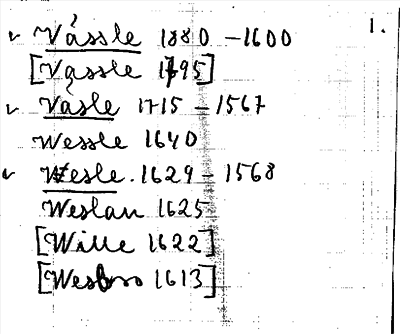 v Vássle 1880 – 1600 1.
[Vassle 1795]
v Vásle 1715 – 1567
Wessle 1640
v Wesle. 1629 – 1568
Weslau 1625
[Wille 1622]
[ 1613]